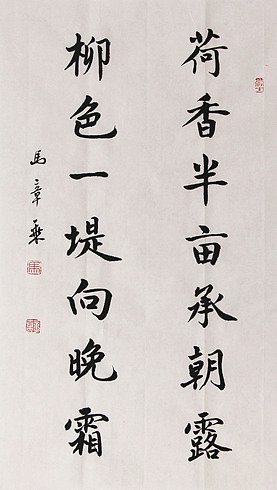 荷香半亩承朝露
柳色一堤向晚霜
馬章乘